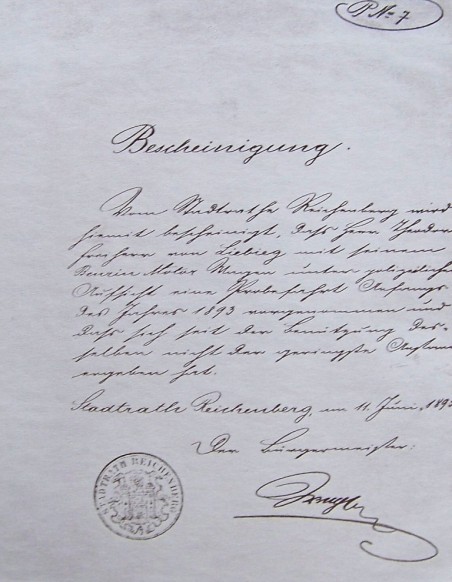 P No 7
Bescheinigung.
Vom Stadtrathe Reichenberg wird
hiemit bescheinigt, dass Herr Theodor
Freiherr von Liebieg mit seinem
Benzin Motor Wagen unter polizeilicher
Aufsicht eine Probefahrt Anfangs
des Jahres 1893 vorgenommen und
dass sich seit der Benützung des-
selben nicht der geringste Anstand
ergeben hat.
Stadtrath Reichenberg, am 11. Juni 189
Der Bürgermeister:
STADTRATH REICHENBERG